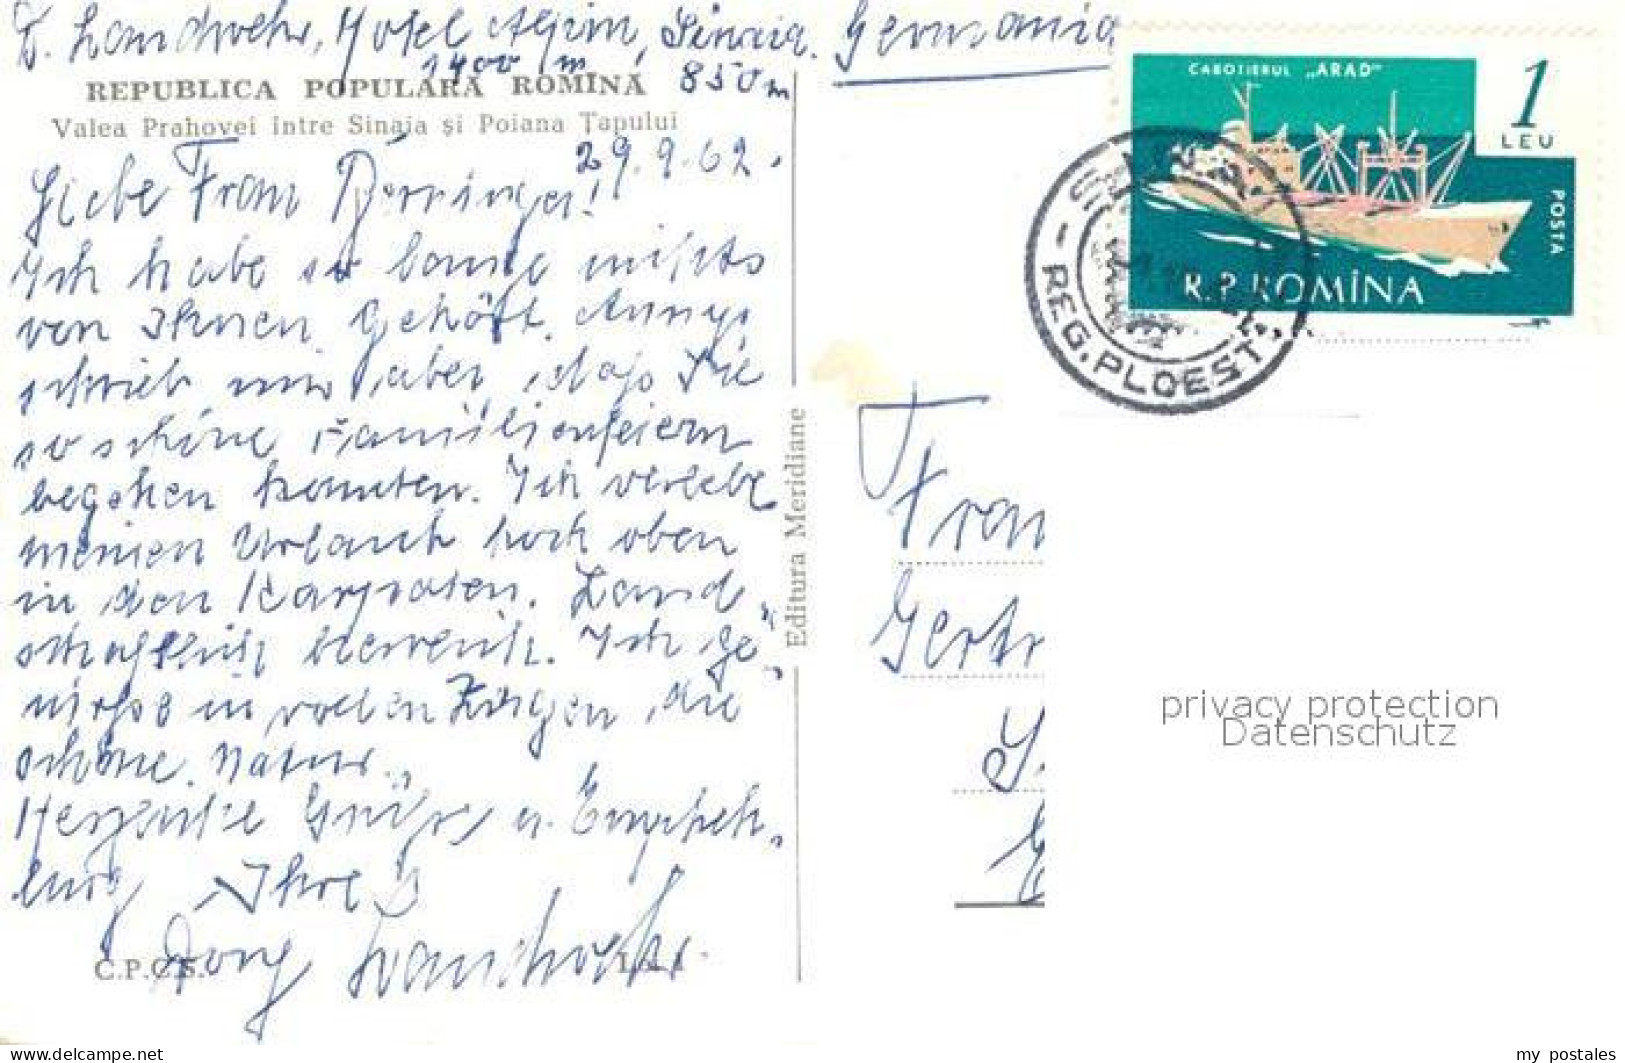 Landwehr, Hotel Alpin, Sinaia.
1400 m
850 m
REPUBLICA POPULARĂ ROMÎNĂ
Valea Prahovei între Sinaia și Poiana Țapului
29.9.62.
Liebe Frau
Ich habe so lange nichts
von Ihnen gehört. Annys
schrieb mir aber, daß Sie
so schöne Familienfeiern
begehen konnten. Ich verlebe
meinen Urlaub hoch oben
in den Karpaten. Land-
schaftlich herrlich. Ich ge-
nieße in vollen Zügen die
schöne Natur.
Herzliche Grüße u. Empfeh-
lung Ihre
Landwehr.
C.P.C.S.
Editura Meridiane
Germania
CABOTIERUL „ARAD”
1
LEU
POSTA
R.P. ROMÎNA
REG. PLOESTI
Frau
Gertr
privacy protection
Datenschutz
my_postales
www.delcampe.net